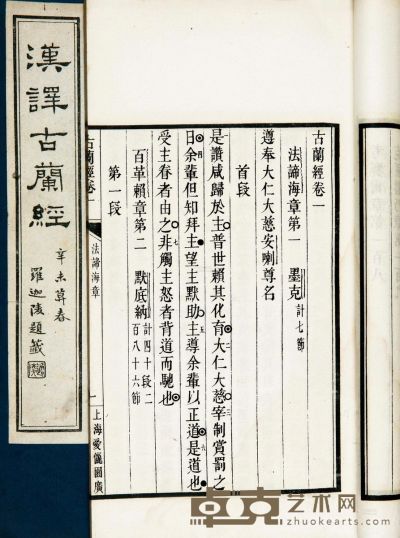 漢譯古蘭經
辛未莫春
羅迦陵題籤
古蘭經卷一
法諦海章第一 墨克 計七節
遵奉大仁大慈安喇尊名
首段
是讚咸歸於主普世賴其化育大仁大慈宰制賞罰之
日余輩但知拜主望主默助主導余輩以正道是道也
受主眷者由之非觸主怒者背道而馳也
百革賴章第二 默底納 計四十段二百八十六節
第一段
古蘭經卷一 法諦海章 一 上海愛儷園廣
卓克艺术网
zhuokearts.com